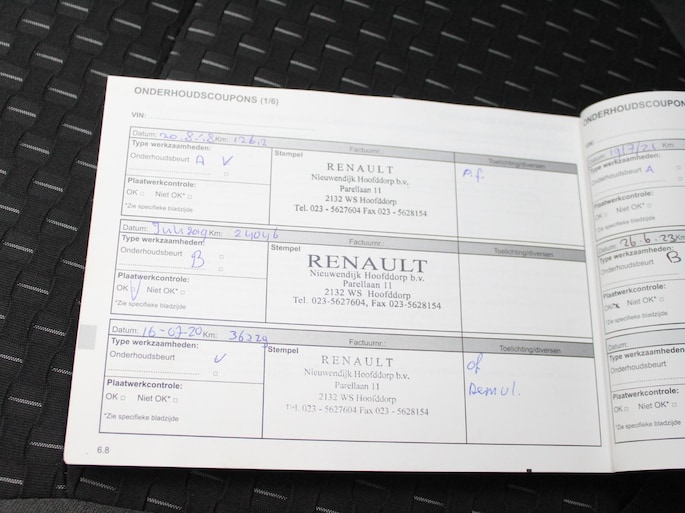 ONDERHOUDSCOUPONS (1/6)
VIN:
Datum: 20-8-18 Km: 12612
Type werkzaamheden:
Onderhoudsbeurt A ✓
Plaatwerkcontrole:
OK □ Niet OK* □
*Zie specifieke bladzijde
Factuurnr.:
Stempel
RENAULT
Nieuwendijk Hoofddorp b.v.
Parellaan 11
2132 WS Hoofddorp
Tel. 023 - 5627604 Fax 023 - 5628154
Toelichting/diversen
Datum: Km: 24046
Type werkzaamheden:
Onderhoudsbeurt B □
Plaatwerkcontrole:
OK ✓ Niet OK* □
*Zie specifieke bladzijde
Factuurnr.:
Stempel
RENAULT
Nieuwendijk Hoofddorp b.v.
Parellaan 11
2132 WS Hoofddorp
Tel. 023-5627604, Fax 023-5628154
Toelichting/diversen
Datum: 16-07-20 Km: 36229
Type werkzaamheden:
Onderhoudsbeurt ✓
Plaatwerkcontrole:
OK □ Niet OK* □
*Zie specifieke bladzijde
Factuurnr.:
Stempel
RENAULT
Nieuwendijk Hoofddorp b.v.
Parellaan 11
2132 WS Hoofddorp
Tel. 023 - 5627604 Fax 023 - 5628154
Toelichting/diversen
6.8
ONDERHOUDSCOUPONS
VIN:
Datum: 19/7/21
Type werkzaamheden:
Onderhoudsbeurt A
Plaatwerkcontrole:
OK □ Niet OK* □
*Zie specifieke bladzijde
Datum: 26-6-23 Km:
Type werkzaamheden:
Onderhoudsbeurt B
Plaatwerkcontrole:
Niet OK* □
*Zie specifieke bladzijde
Datum:
Type werkzaamheden:
Onderhoudsbeurt
Plaatwerkcontrole:
OK □ Niet OK* □
*Zie specifieke bladzijde